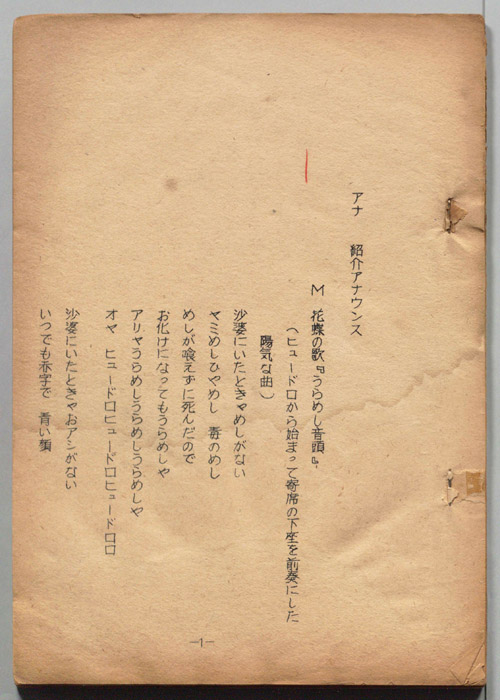 アナ　紹介アナウンス
M　花蝶の歌『うらめし音頭』
（ヒュードロから始まって寄席の下座を前奏にした
陽気な曲）
沙婆にいたときゃめしがない
ヤミめしひやめし　毒のめし
めしが喰えずに死んだので
お化けになってもうらめしや
アリャうらめしうらめしうらめしや
オヤ　ヒュードロヒュードロヒュードロロ
沙婆にいたときゃおアシがない
いつでも赤字で　青い顔
―1―